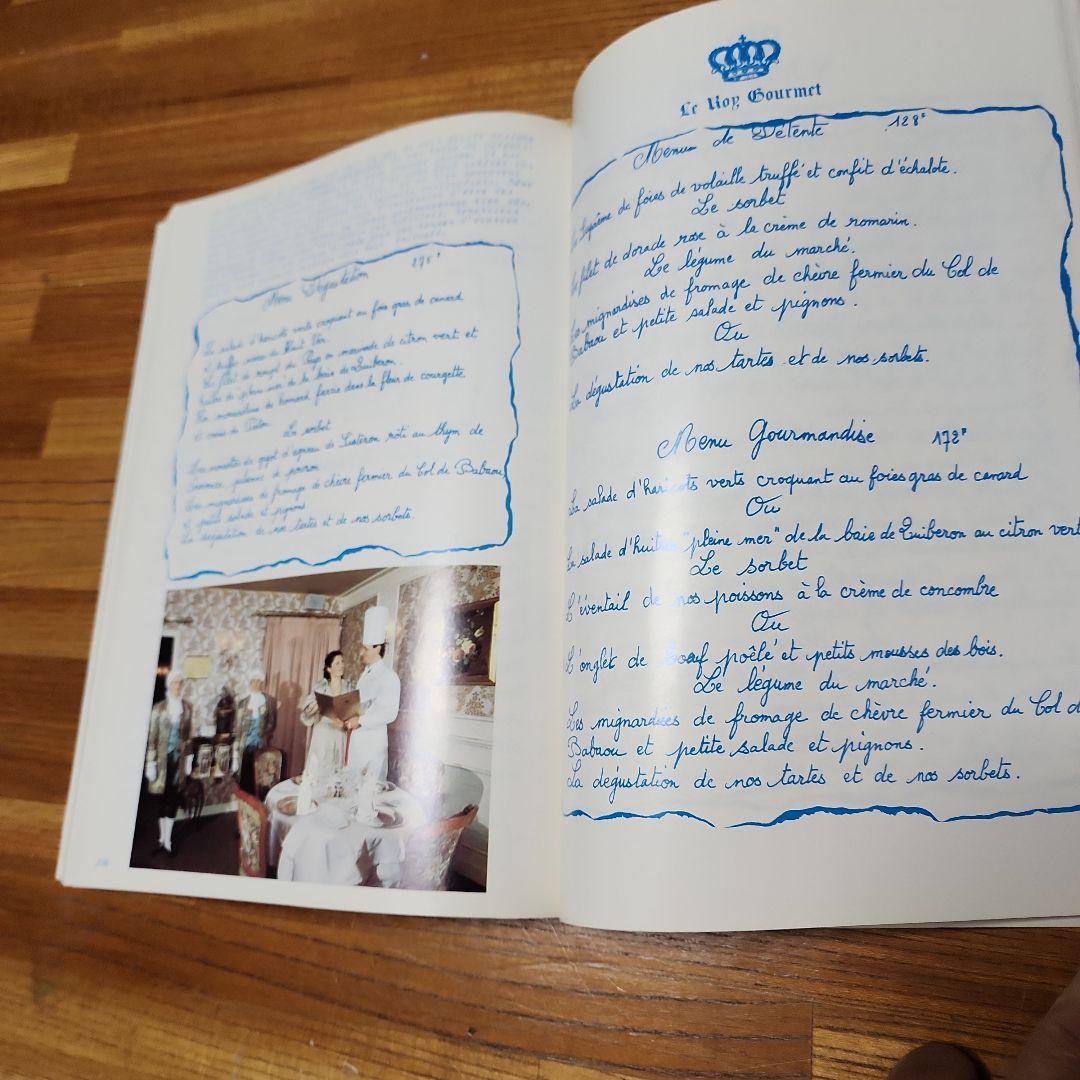 Menu Dégustation 275F
La salade d'haricots verts croquant au foie gras de canard
et truffe du Haut Var.
Le filet de rouget du Pays en marinade de citron vert et
huître de pleine mer de la baie de Quiberon.
de homard farcie dans la fleur de courgette
et
Le sorbet
Les noisettes de gigot d'agneau de Sisteron rôti au thym de
Provence,
Les mignardises de fromage de chèvre fermier du Col de Babaou
et petite salade et pignons.
La dégustation de nos tartes et de nos sorbets.
Le Roy Gourmet
Menu de Détente 128F
Le Suprême de foies de volaille truffé et confit d'échalote.
Le sorbet
Le filet de dorade rose à la crème de romarin.
Le légume du marché.
Les mignardises de fromage de chèvre fermier du Col de
Babaou et petite salade et pignons.
Ou
La dégustation de nos tartes et de nos sorbets.
Menu Gourmandise 172F
La salade d'haricots verts croquant au foies gras de canard
Ou
La salade d'huitres "pleine mer" de la baie de Quiberon au citron vert
Le sorbet
L'éventail de nos poissons à la crème de concombre
Ou
L'onglet de boeuf poêlé et petits mousses des bois.
Le légume du marché.
Les mignardises de fromage de chèvre fermier du Col de
Babaou et petite salade et pignons.
La dégustation de nos tartes et de nos sorbets.